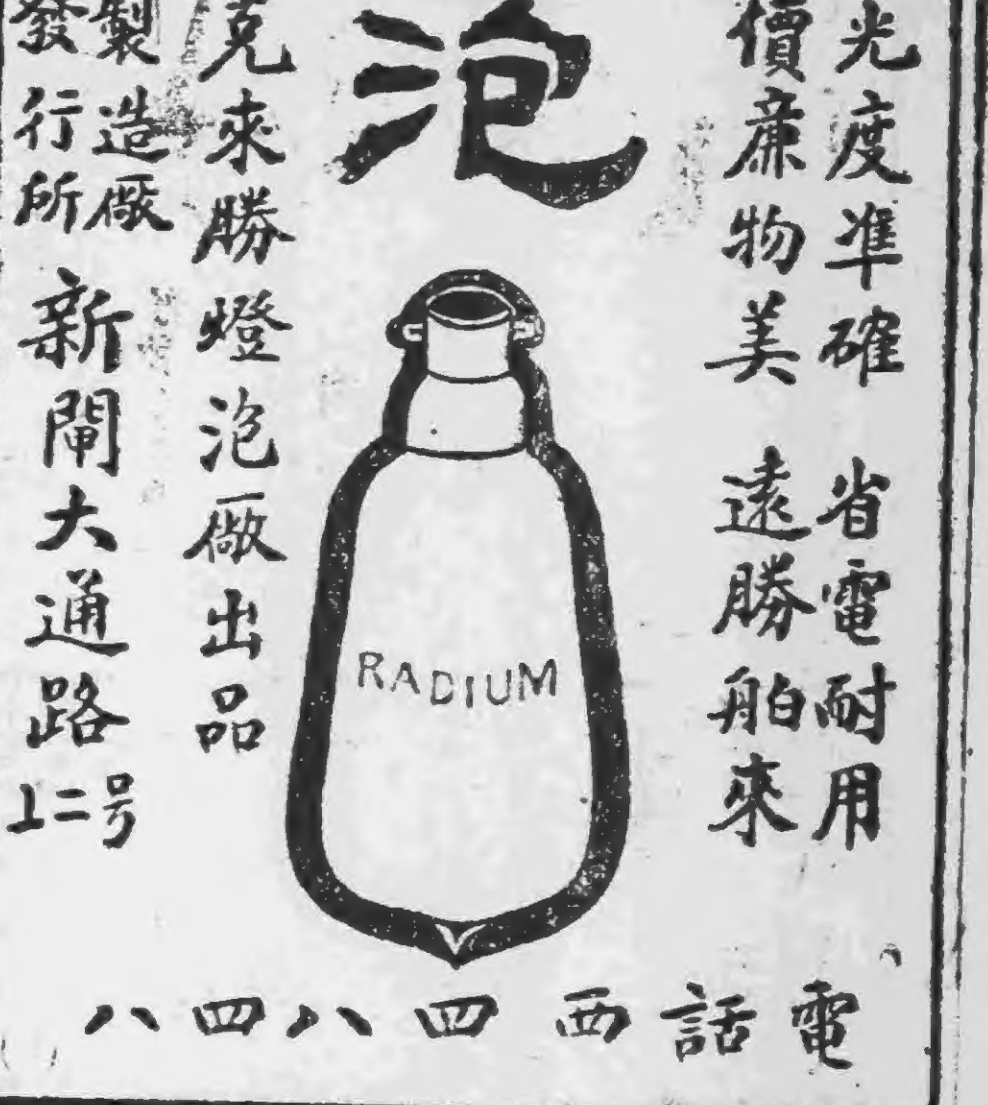 光度準確 省電耐用
價廉物美 遠勝舶來
泡
RADIUM
克來勝燈泡厰出品
製造厰
發行所
新閘大通路〦二号
電話 西四八四八